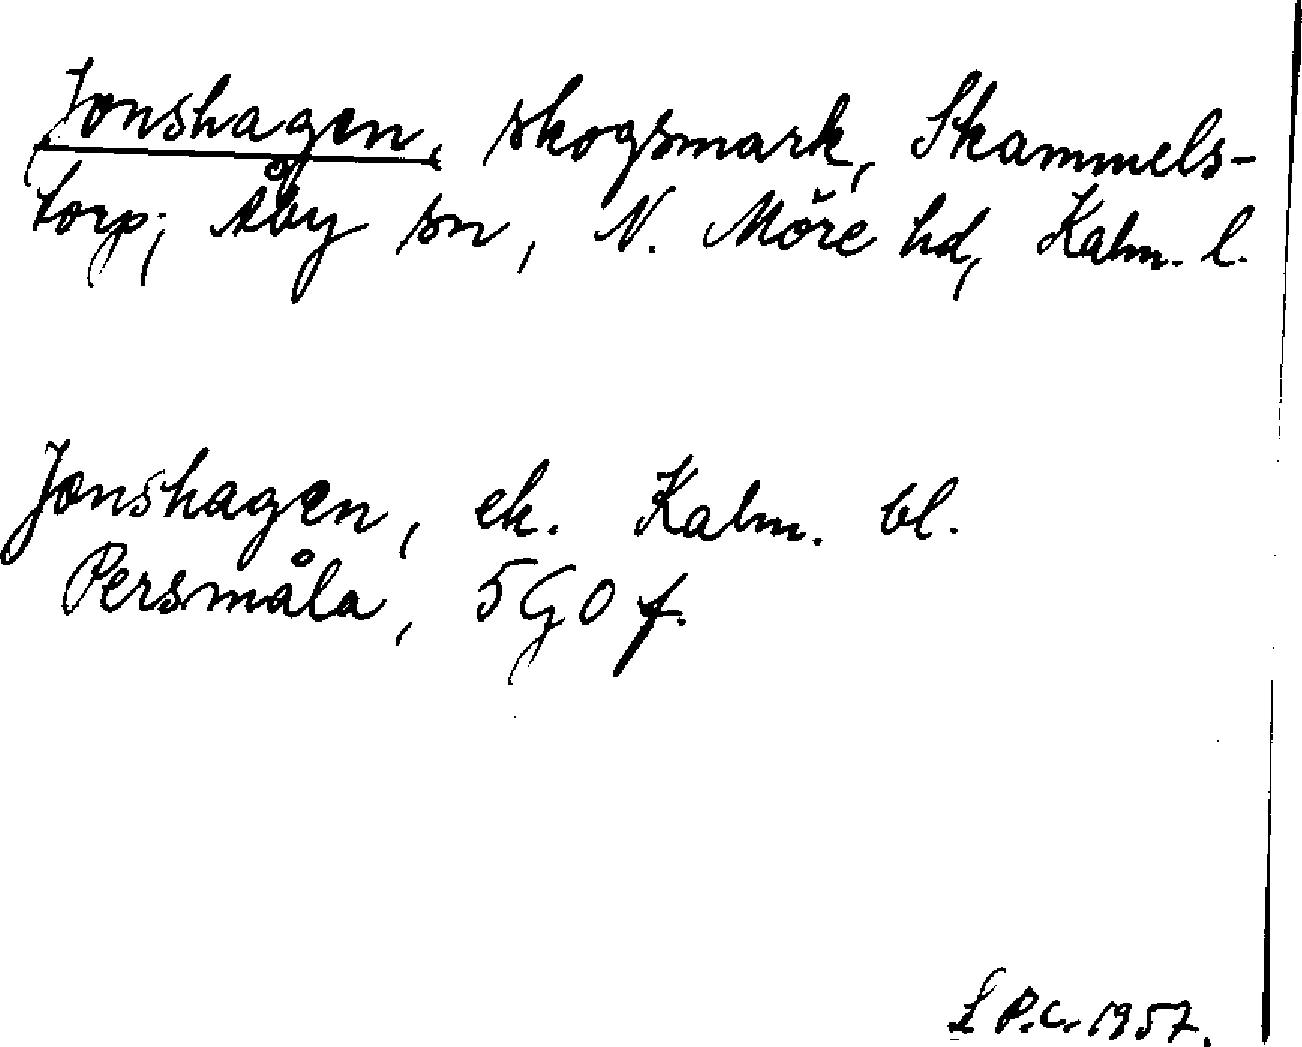 Jonshagen, skogsmark, Skammels-
torp; Åby sn, N. Möre hd, Kalm. l.
Jonshagen, ek. Kalm. bl.
Persmåla, 5 G 0 f.
P.C. 1957.